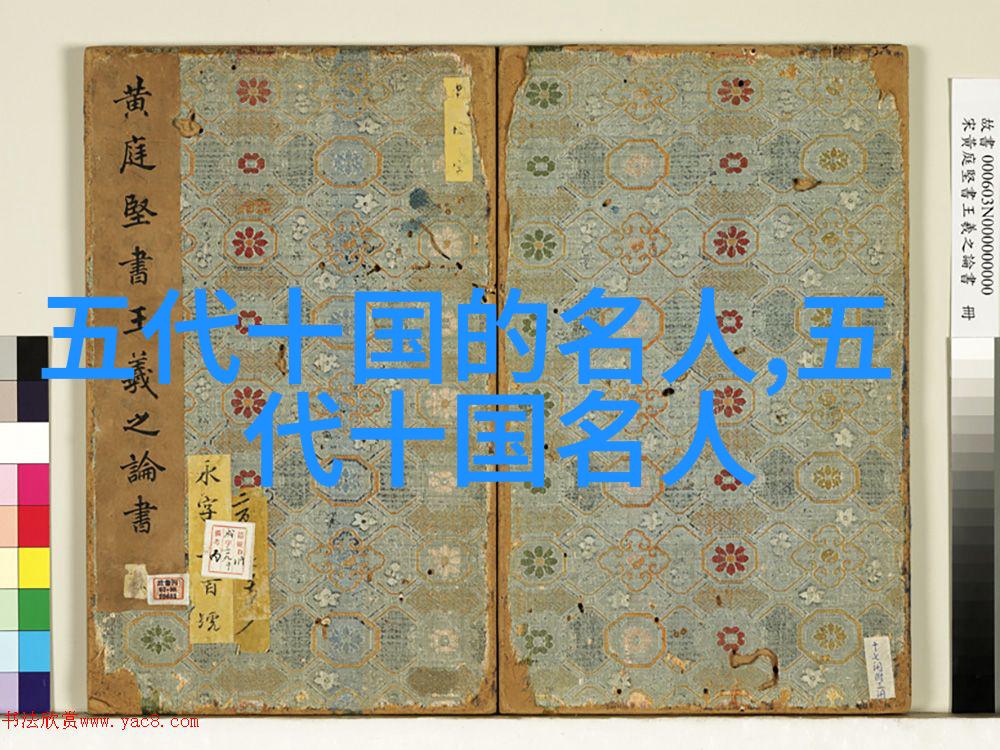 黄庭堅書王羲之論書
五代十国的名人,五
代十国名人
永字
百號
故書 000603N000000000
宋黄庭堅書王羲之論書 冊
书法欣赏www.yac8.com